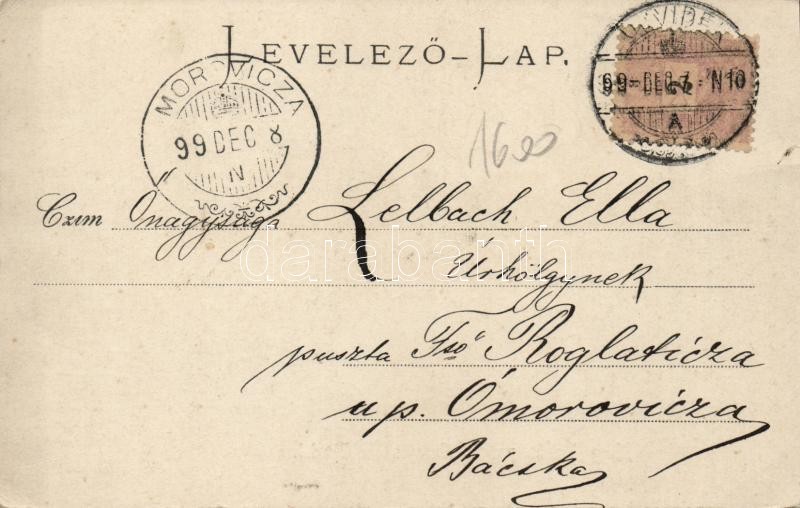 LEVELEZŐ-LAP.
MOROVICZA
99 DEC 8
N
99 DEC 7 N10
A
1600
Czím Őnagysága Lelbach Ella
Úrhölgynek
puszta Fső Roglaticza
u. p. Ómorovicza
Bácska
darabanth.com